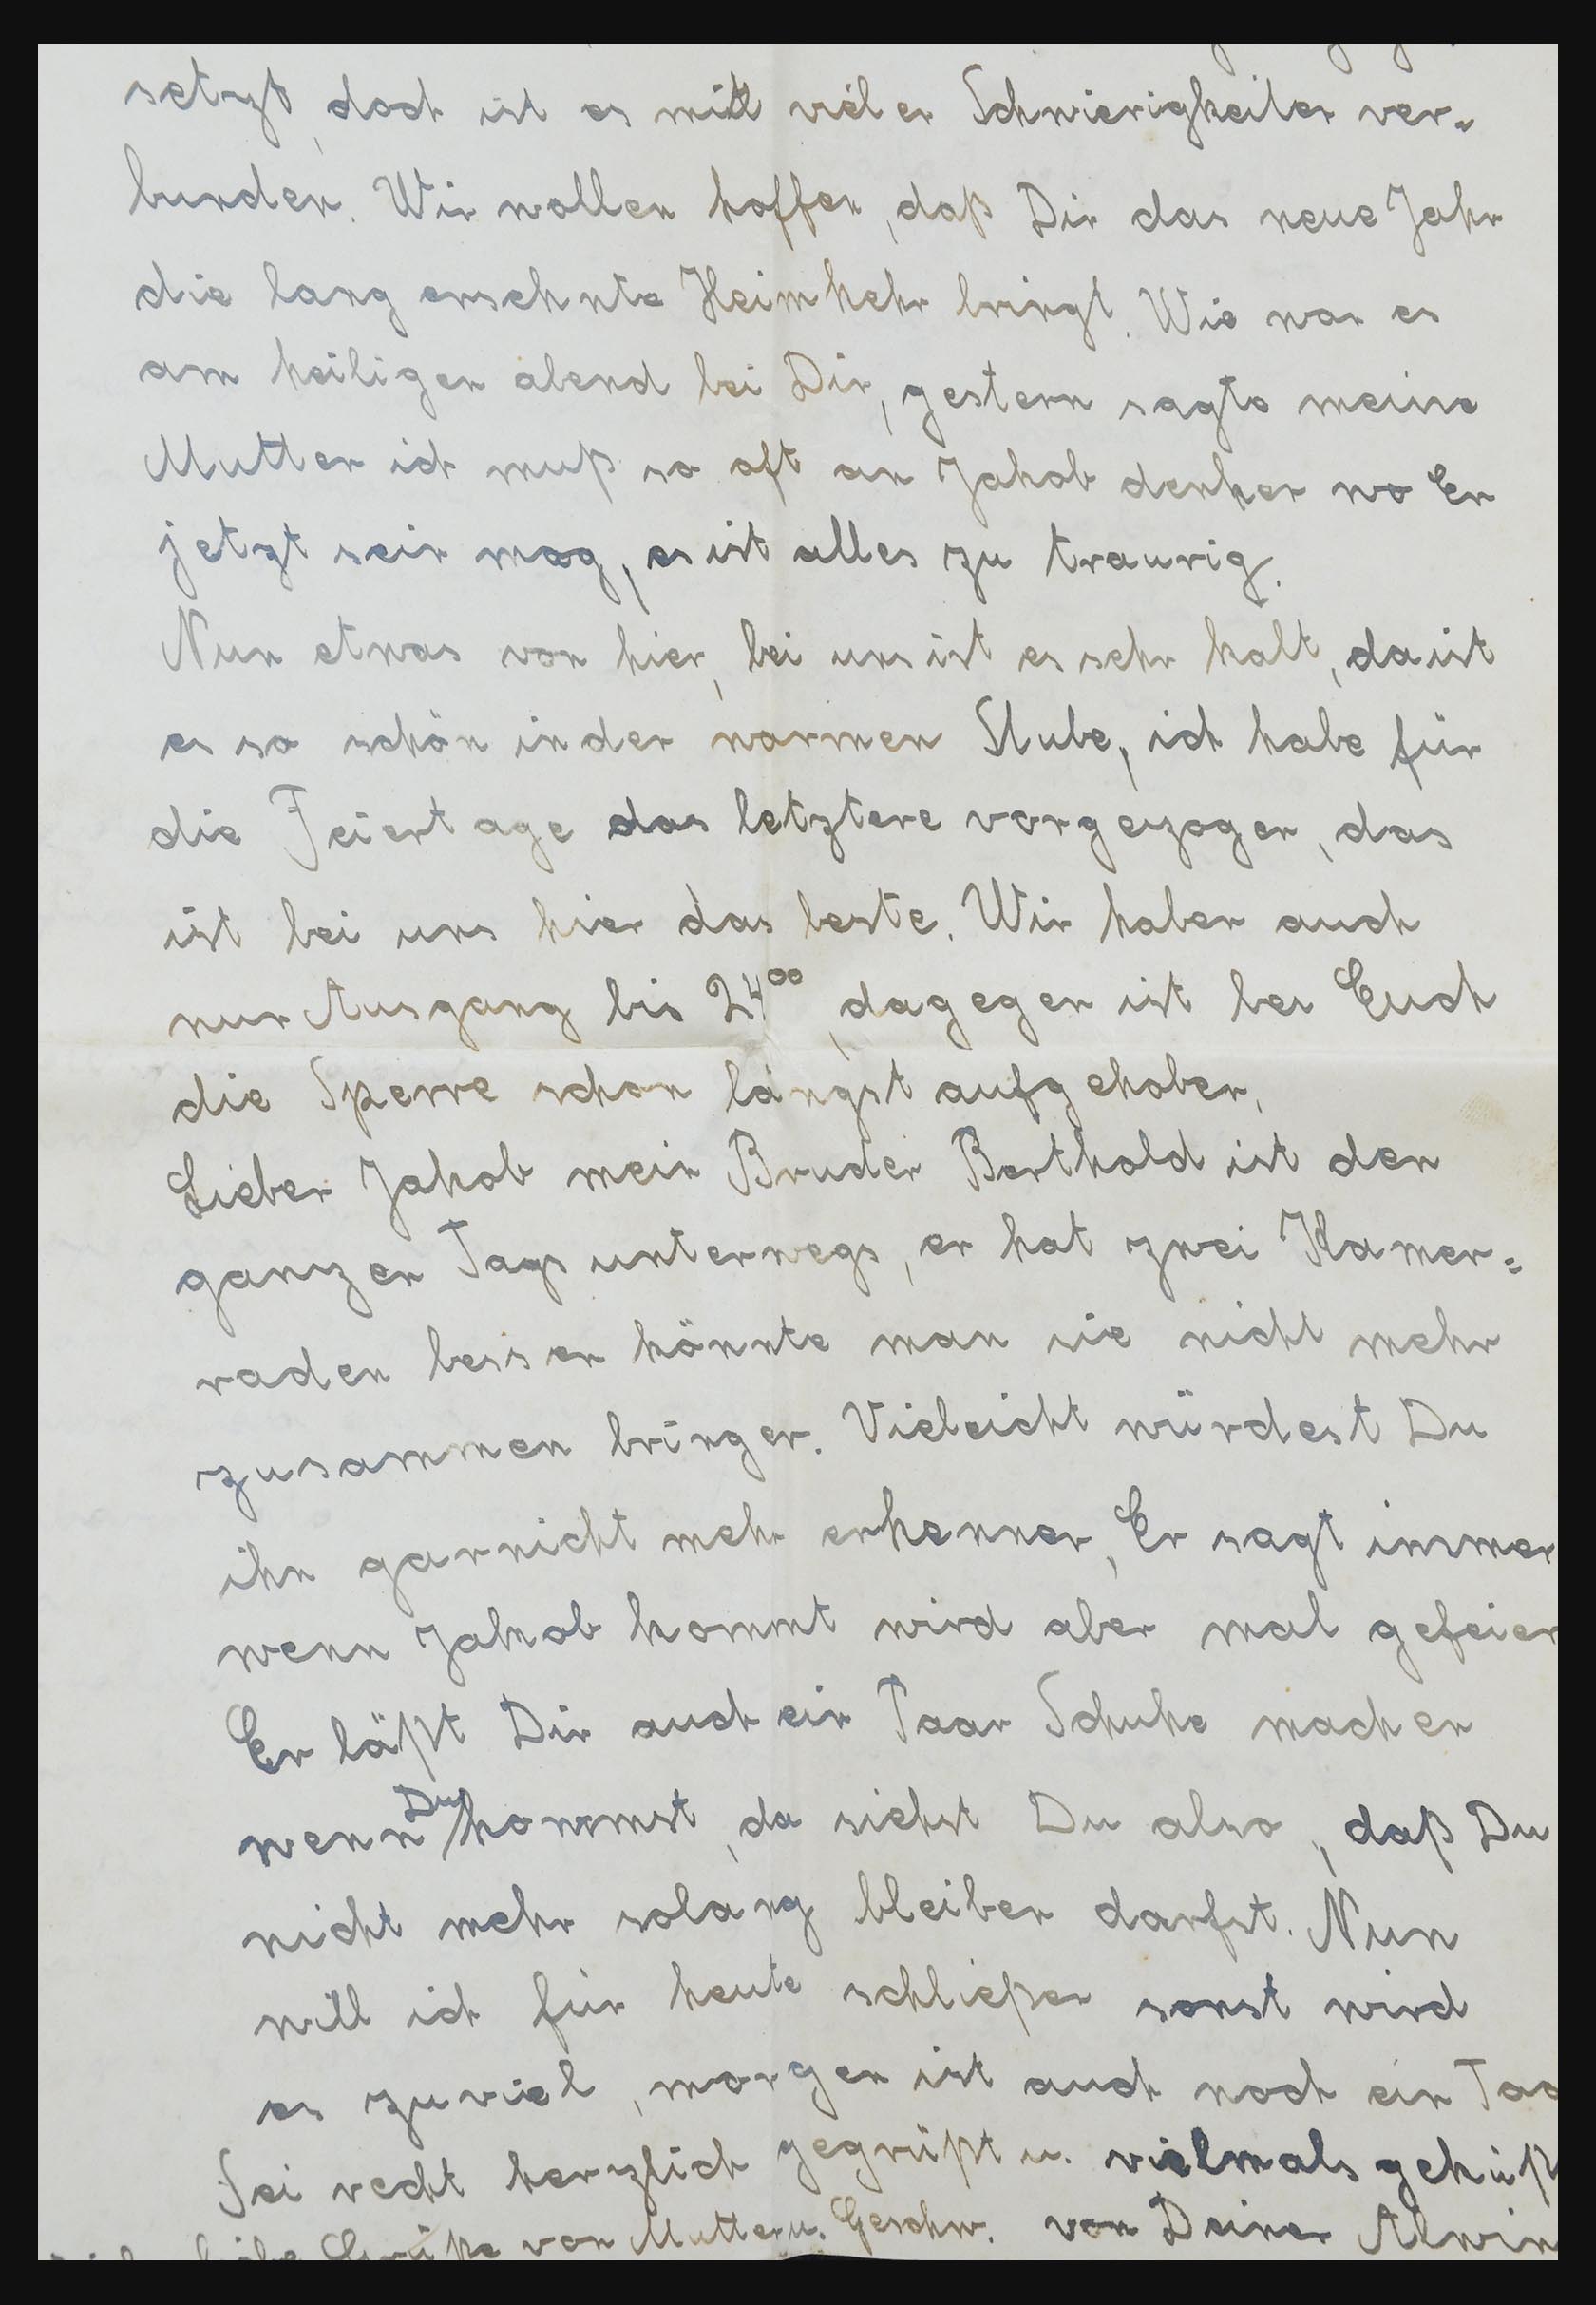 setzt, doch ist es mit vielen Schwierigkeiten ver-
bunden. Wir wollen hoffen, daß Dir das neue Jahr
die lang ersehnte Heimkehr bringt. Wie war es
am heiligen abend bei Dir, gestern sagte meine
Mutter ich muß so oft an Jakob denken wo Er
jetzt sein mag, es ist alles zu traurig.
Nun etwas von hier, bei uns ist es sehr kalt, da ist
es so schön in der warmen Stube, ich habe für
die Feiertage das letztere vorgezogen, das
ist bei uns hier das beste. Wir haben auch
nur Ausgang bis 24⁰⁰, dagegen ist bei Euch
die Sperre schon längst aufgehoben.
Lieber Jakob mein Bruder Berthold ist den
ganzen Tags unterwegs, er hat zwei Kamer=
raden besser könnte man sie nicht mehr
zusammen bringen. Vieleicht würdest Du
ihn garnicht mehr erkennen, Er sagt immer
wenn Jakob kommt wird aber mal gefeier
Er läßt Dir auch ein Paar Schuhe machen
wenn Du kommst, da siehst Du also, daß Du
nicht mehr solang bleiben darfst. Nun
will ich für heute schließen sonst wird
es zuviel, morgen ist auch noch ein Tag
Sei recht herzlich gegrüßt u. vielmals geküß
liebe Grüße von Mutter u. Geschw. von Deiner Alwin